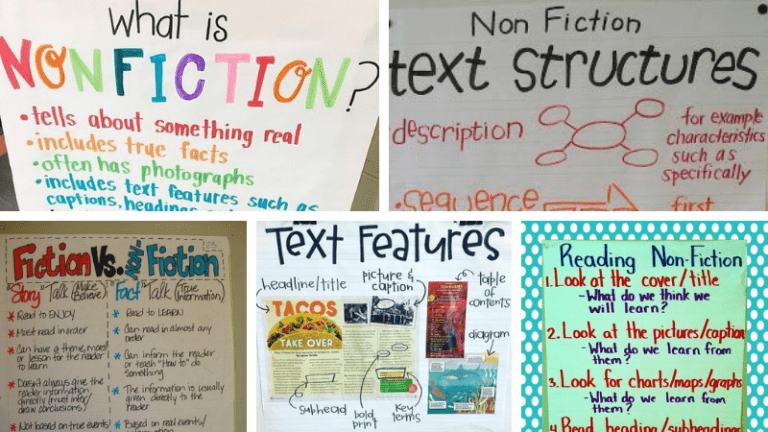 what is
NONFICTION?
• tells about something real
• includes true facts
• often has photographs
• includes text features such as
captions, headings
Non Fiction
text structures
description
for example
characteristics
such as
specifically
• sequence
first
Fiction Vs. NON-Fiction
Story Talk (Make Believe)
* Read to ENJOY
* Must read in order
* Can have a theme, moral
or lesson for the reader
to learn
* Doesn't always give the
reader information
directly (must infer/
draw conclusions)
* Not based on true events
Fact Talk (True Information)
* Read to LEARN
* Can read in almost any
order
* Can inform the reader
or teach "How to" do
something
* The information is usually
given directly to the
reader
* Based on real events/
Text Features
headline/title
picture &
caption
table
of
contents
TACOS
TAKE OVER
diagram
subhead
bold
print
key
terms
Reading Non-Fiction
1. Look at the cover/title
- What do we think we
will learn?
2. Look at the pictures/caption
- What do we learn from
them?
3. Look for charts/maps/graphs
- What do we learn from
them?
4. Read heading/subheadings